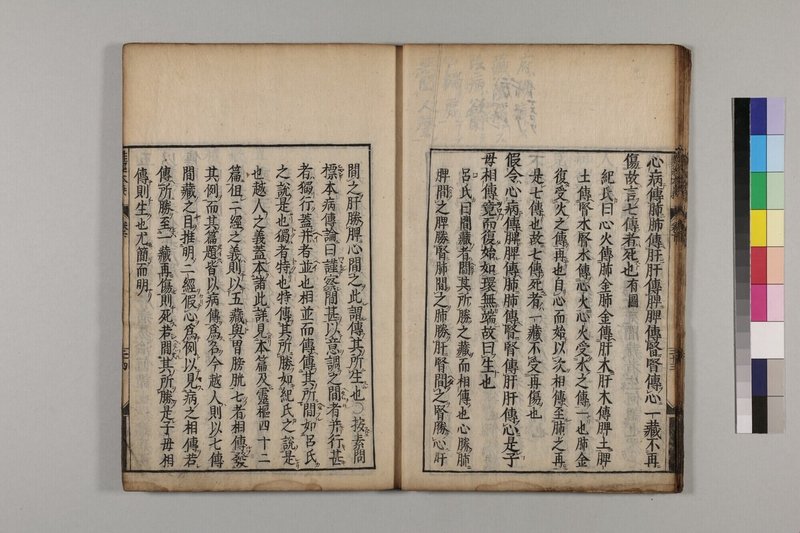 心病傳肺肺傳肝肝傳脾脾傳腎腎傳心一藏不再
傷故言七傳者死也有圖
紀氏曰心火傳肺金肺金傳肝木肝木傳脾土脾
土傳腎水腎水傳心火心火受水之傳一也肺金
復受火之傳再也自心而始以次相傳至肺之再
是七傳也故七傳死者一藏不受再傷也
假令心病傳脾脾傳肺肺傳腎腎傳肝肝傳心是子
母相傳竟而復始如環無端故曰生也
呂氏曰間藏者間其所勝之藏而相傳也心勝肺
脾間之脾勝腎肺間之肺勝肝腎間之腎勝心肝
間之肝勝脾心間之此謂傳其所生也○按素問
標本病傳論曰謹察間甚以意調之間者并行甚
者獨行蓋并者並也相並而傳傳其所間如呂氏
之說是也獨者特也特傳其所勝如紀氏之說是
也越人之義蓋本諸此詳見本篇及靈樞四十二
篇但二經之義則以五藏與胃膀胱七者相傳發
其例而其篇題皆以病傳爲名今越人則以七傳
間藏之目推明二經假心爲例以見病之相傳若
傳所勝至一藏再傷則死若間其所勝是子母相
傳則生也尤簡而明